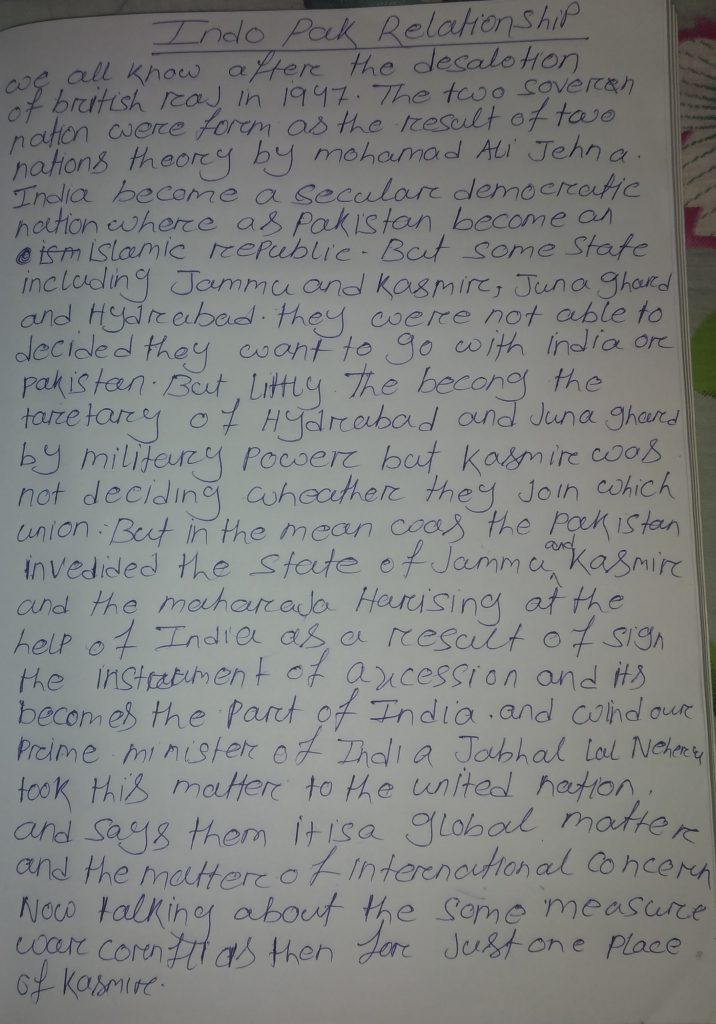 Indo Pak Relationship
we all know after the desalotion
of british reaj in 1947. The two soveren
nation were form as the result of two
nations theory by mohamad Ali Jehna.
India become a secular democratic
nation where as Pakistan become an
islamic republic. But some state
including Jammu and Kasmir, Juna ghard
and Hydrabad. they were not able to
decided they want to go with india or
pakistan. But littly The becong the
taretary of Hydrabad and Juna ghard
by military Power but Kasmir was
not deciding wheather they Join which
union. But in the mean coas the Pakistan
invedided the State of Jammu and Kasmir
and the maharaja Harising at the
help of India as a result of sign
the instrument of axcession and its
becomes the Part of India. and our
Prime minister of India Jabhal lal Neheru
took this matter to the united nation.
and says them it is a global matter
and the matter of international concern
Now talking about the some measure
war as then for Just one Place
of Kasmir.